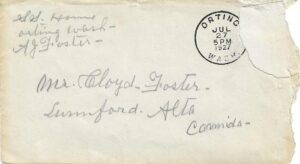 Sol. Home
orting Wash
A J Foster
ORTING
JUL
27
5 PM
1927
WASH.
Mr. Cloyd Foster
Lunnford Alta
Cannida